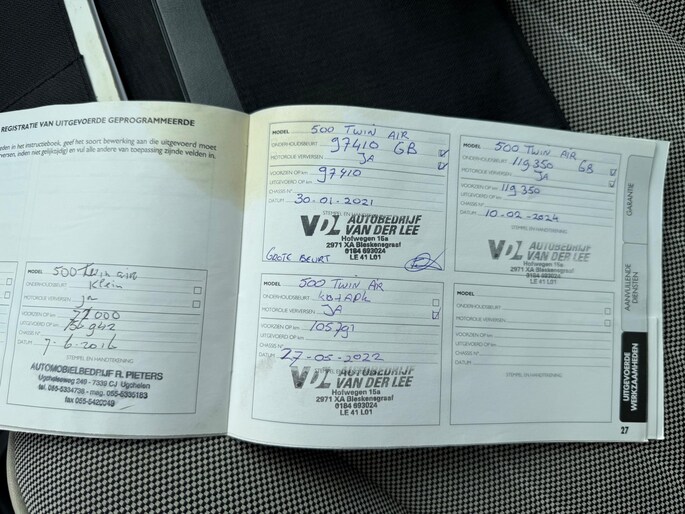 REGISTRATIE VAN UITGEVOERDE GEPROGRAMMEERDE
eden in het instructieboek, geef het soort bewerking aan die uitgevoerd moet
versen, indien niet gelijktijdig) en vul alle andere van toepassing zijnde velden in.
MODEL 500 Twin air
ONDERHOUDSBEURT Klein
MOTOROLIE VERVERSEN ja
VOORZIEN OP km
UITGEVOERD OP km
CHASSIS N°
DATUM 7-6-2016
STEMPEL EN HANDTEKENING
AUTOMOBIELBEDRIJF R. PIETERS
Ughelseweg 249 - 7339 CJ Ugchelen
MODEL 500 TWIN AIR
ONDERHOUDSBEURT 97410 GB
MOTOROLIE VERVERSEN JA
VOORZIEN OP km 97410
UITGEVOERD OP km
CHASSIS N°
DATUM 30-01-2021
STEMPEL EN HANDTEKENING
VDL AUTOBEDRIJF
VAN DER LEE
Hofwegen 16a
2971 XA Bleskensgraaf
0184 693024
LE 41 L01
GROTE BEURT
MODEL 500 TWIN AIR
ONDERHOUDSBEURT KB+APK
MOTOROLIE VERVERSEN JA
VOORZIEN OP km 105791
UITGEVOERD OP km
CHASSIS N°
DATUM 27-05-2022
STEMPEL EN HANDTEKENING
VDL AUTOBEDRIJF
VAN DER LEE
Hofwegen 16a
2971 XA Bleskensgraaf
0184 693024
LE 41 L01
MODEL 500 TWIN AIR
ONDERHOUDSBEURT 119.350 GB
MOTOROLIE VERVERSEN JA
VOORZIEN OP km 119.350
UITGEVOERD OP km
CHASSIS N°
DATUM 10-02-2024
STEMPEL EN HANDTEKENING
VDL AUTOBEDRIJF
VAN DER LEE
Hofwegen 16a
2971 XA Bleskensgraaf
0184 693024
LE 41 L01
MODEL
ONDERHOUDSBEURT
MOTOROLIE VERVERSEN
VOORZIEN OP km
UITGEVOERD OP km
CHASSIS N°
DATUM
STEMPEL EN HANDTEKENING
GARANTIE
AANVULLENDE
DIENSTEN
UITGEVOERDE
WERKZAAMHEDEN
27